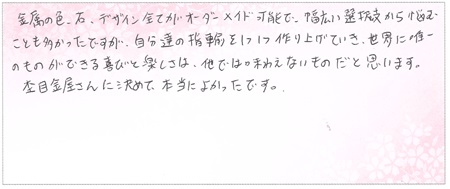 金属の色、石、デザイン全てがオーダーメイド可能で、幅広い選択肢から悩む
ことも多かったですが、自分達の指輪を1つ1つ作り上げていき、世界に唯一
のものができる喜びと楽しさは、他では味わえないものだと思います。
杢目金屋さんに決めて、本当によかったです。